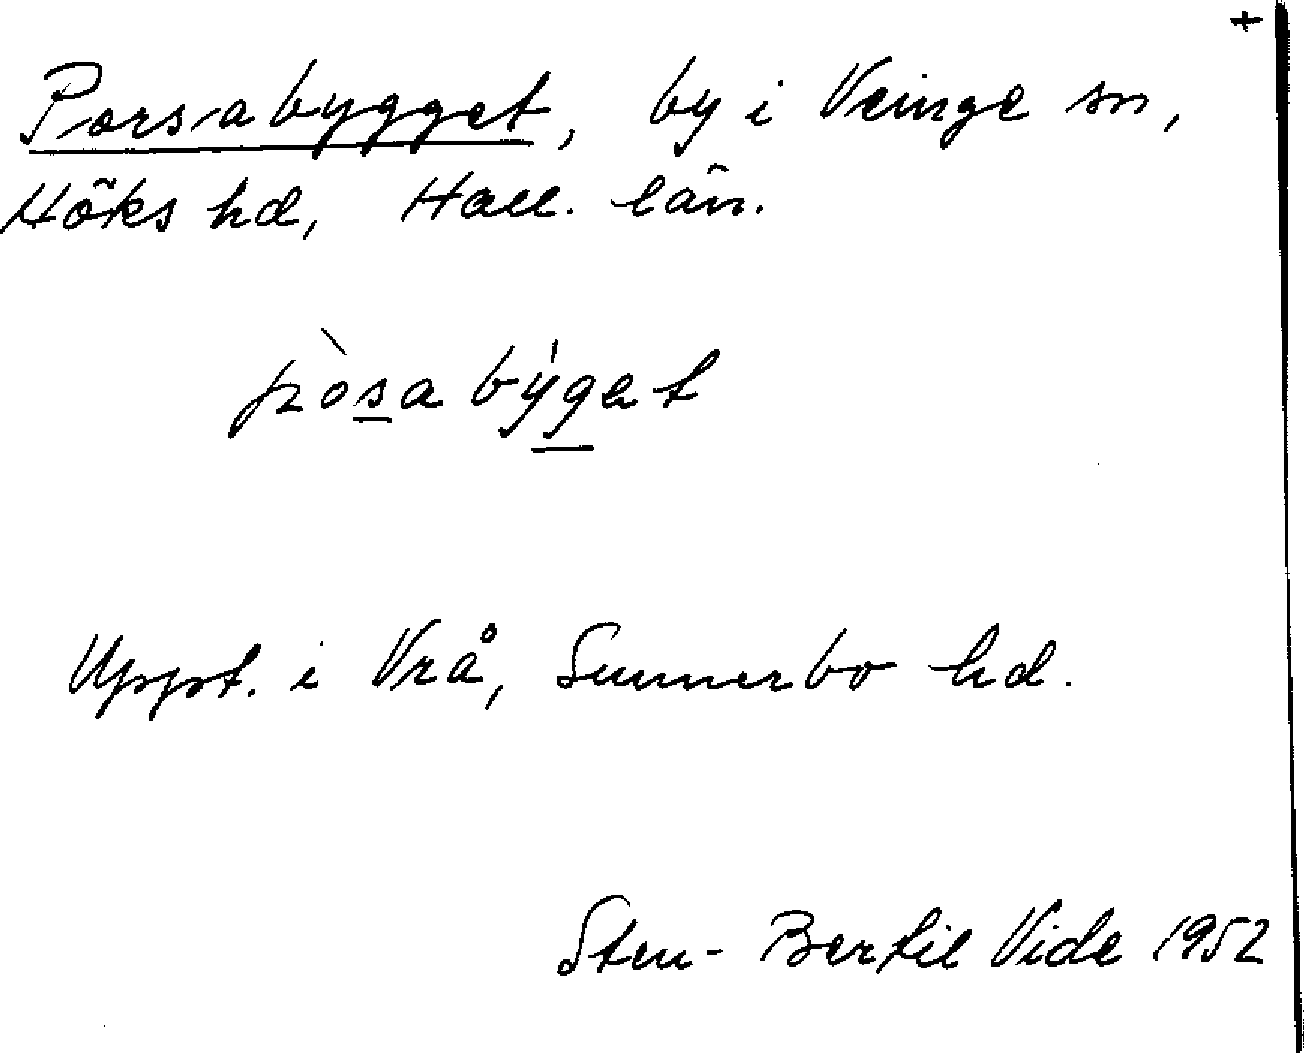 +
Porsabygget, by i Veinge sn,
Höks hd, Hall. län.
pòsabýget
Uppt. i Vrå, Sunnerbo hd.
Sten-Bertil Vide 1952